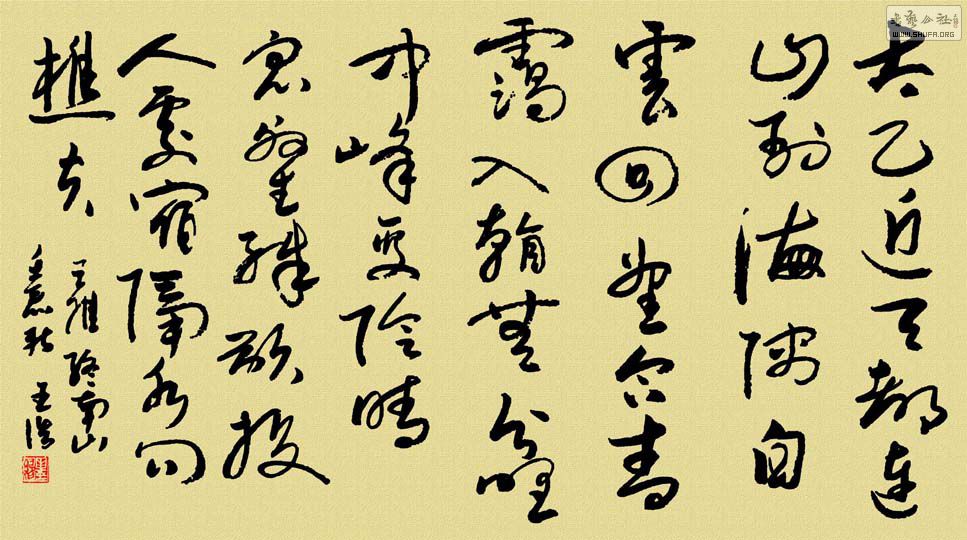 太乙近天都連
山到海隅白
雲回望合青
靄入看無分野
中峰變陰晴
眾壑殊欲投
人處宿隔水問
樵夫
王維終南山
王
WWW.SHUFA.ORG